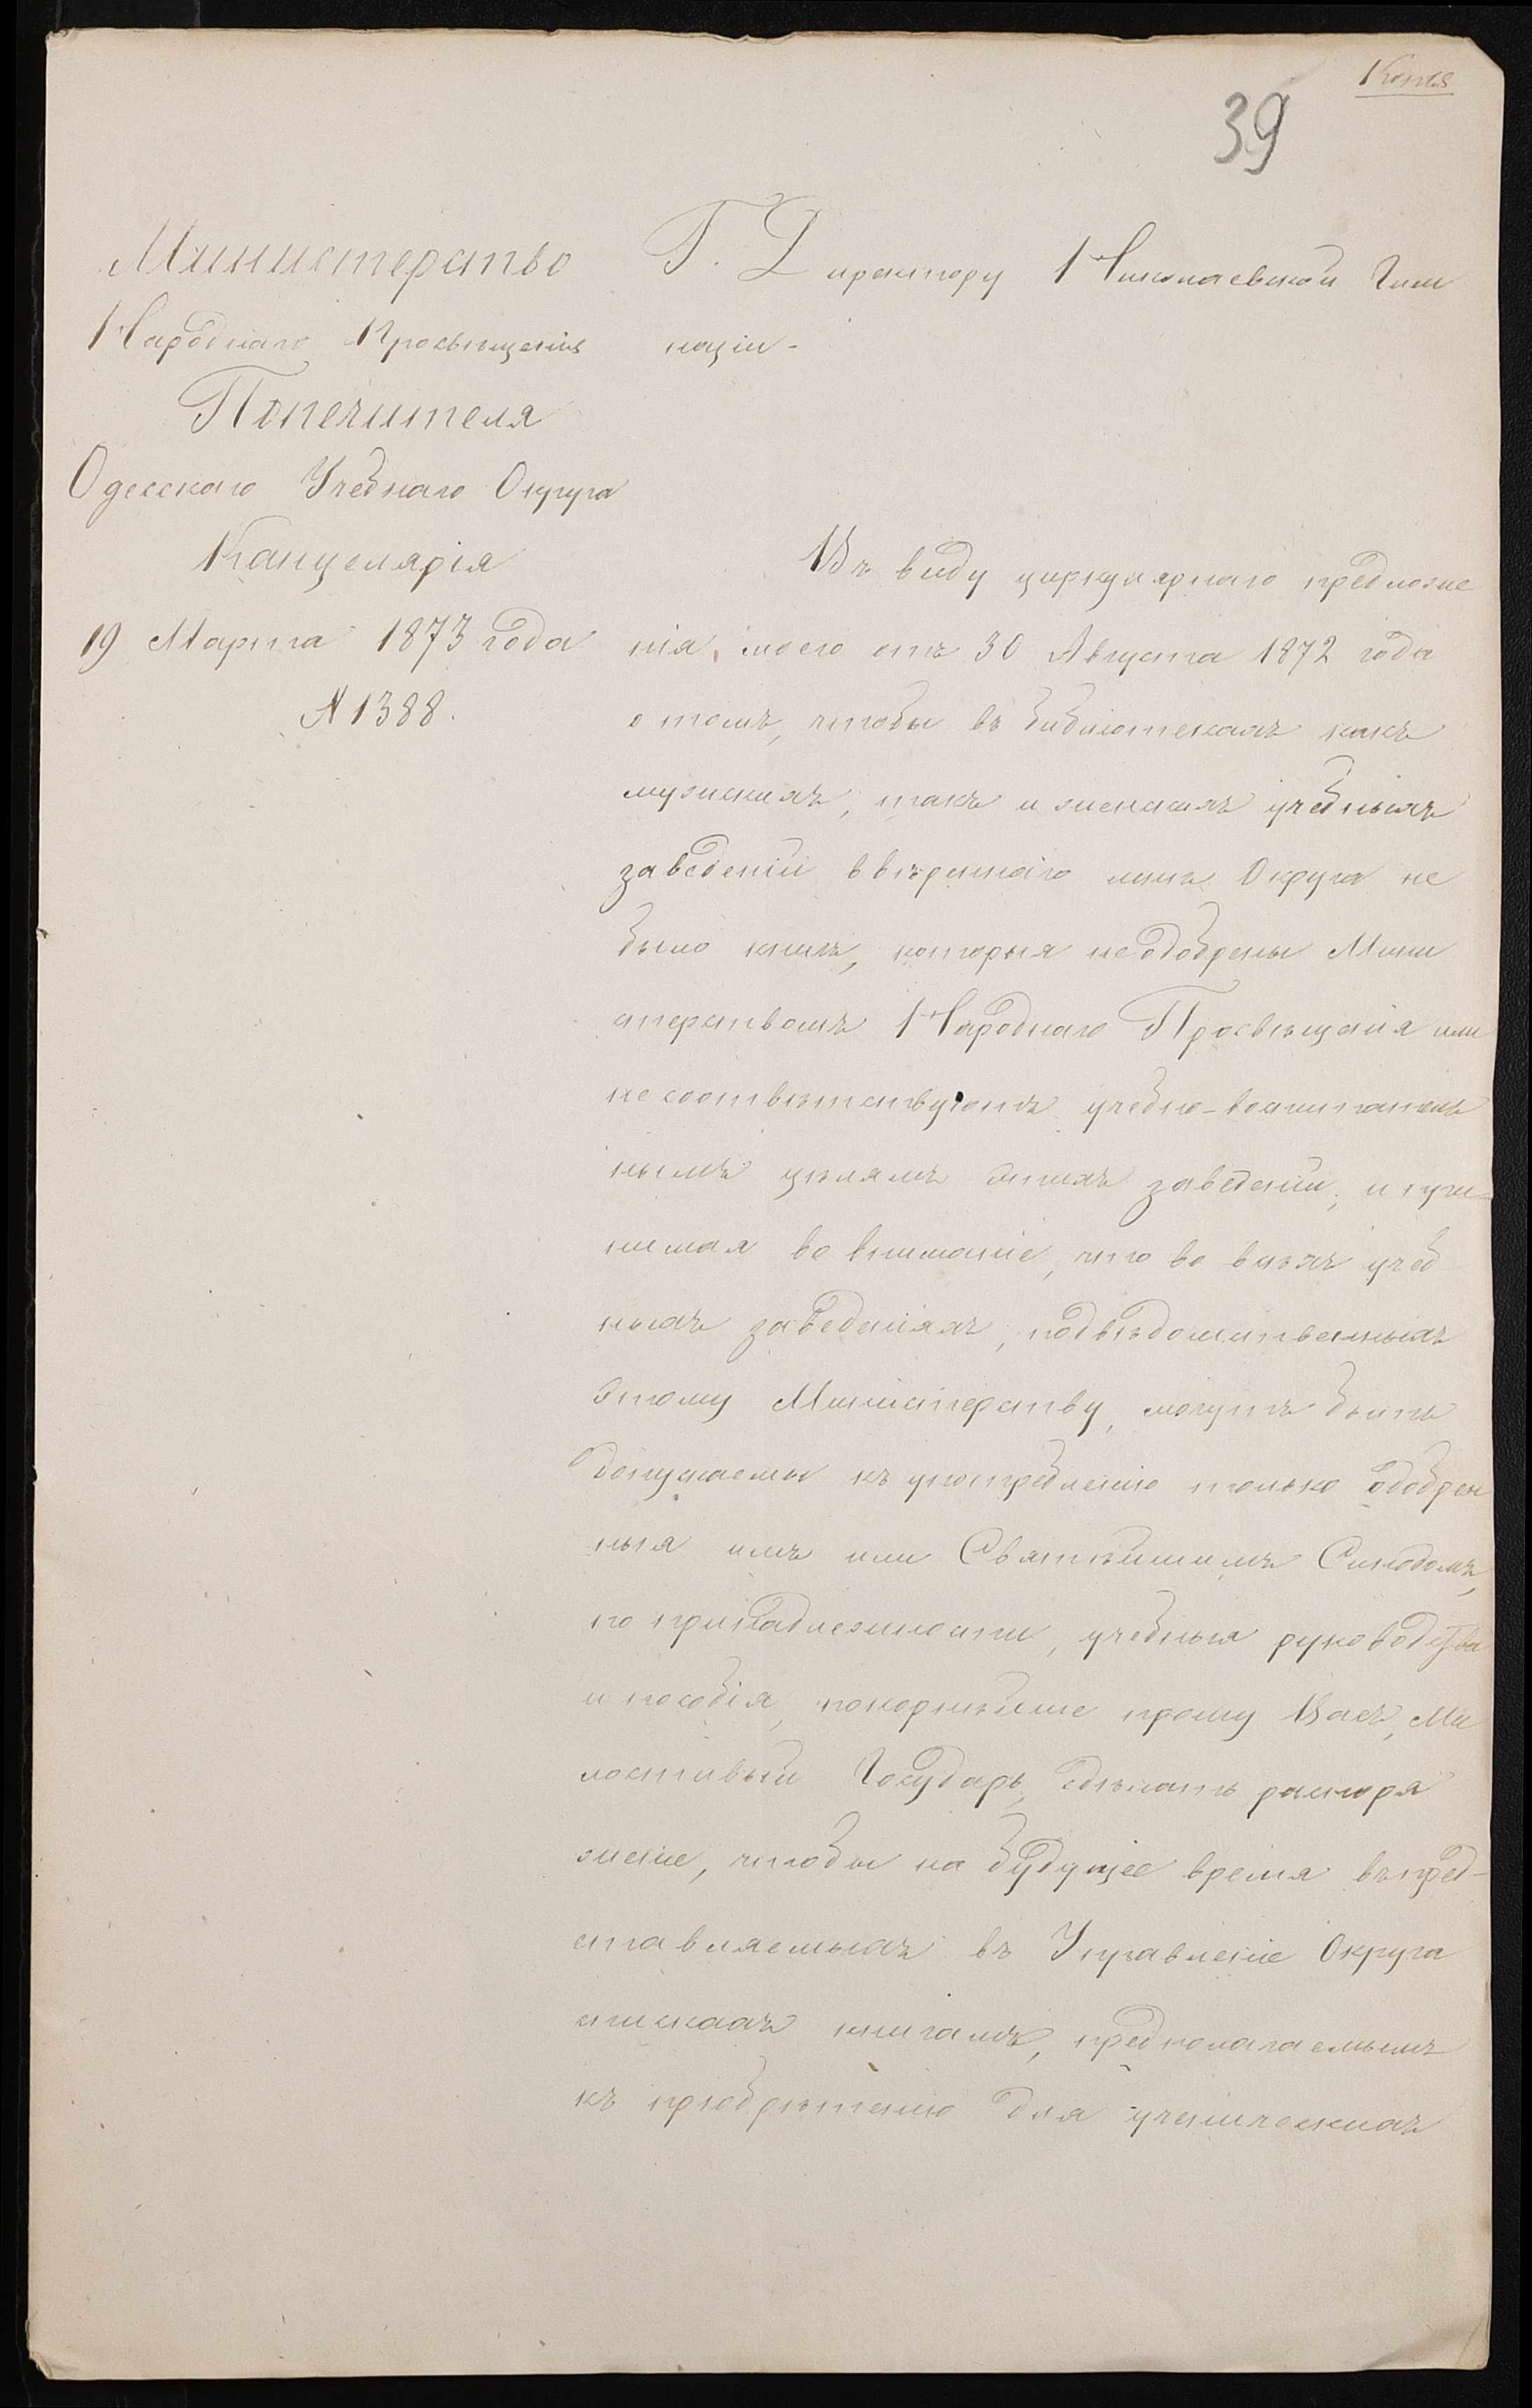 Копія
39
Министерство
Народнаго Просвѣщенія
Попечителя
Одесскаго Учебнаго Округа
Канцелярія
19 Марта 1873 года
№ 1388.
Г. Директору Николаевской Гим
назіи.
Въ виду циркулярнаго предложе
нія, моего отъ 30 Августа 1872 года
о томъ, чтобы въ библіотекахъ какъ
мужскихъ, такъ и женскихъ учебныхъ
заведеній ввѣреннаго мнѣ Округа не
было книгъ, которыя неодобрены Мини
стерствомъ Народнаго Просвѣщенія или
несоотвѣтствуютъ учебно-воспитатель
нымъ цѣлямъ этихъ заведеній, и при-
нимая во вниманіе, что во всѣхъ учеб
ныхъ заведеніяхъ, подвѣдомственныхъ
этому Министерству, могутъ быть
допускаемы къ употребленію только одобрен
ныя имъ или Святѣйшимъ Синодомъ,
по принадлежности, учебныя руководства
и пособія, покорнѣйше прошу Васъ, Ми
лостивый Государь, сдѣлать распоря
женіе, чтобы на будущее время въ пред-
ставляемыхъ въ Управленіе Округа
спискахъ книгамъ, предполагаемымъ
къ пріобрѣтенію для ученическихъ